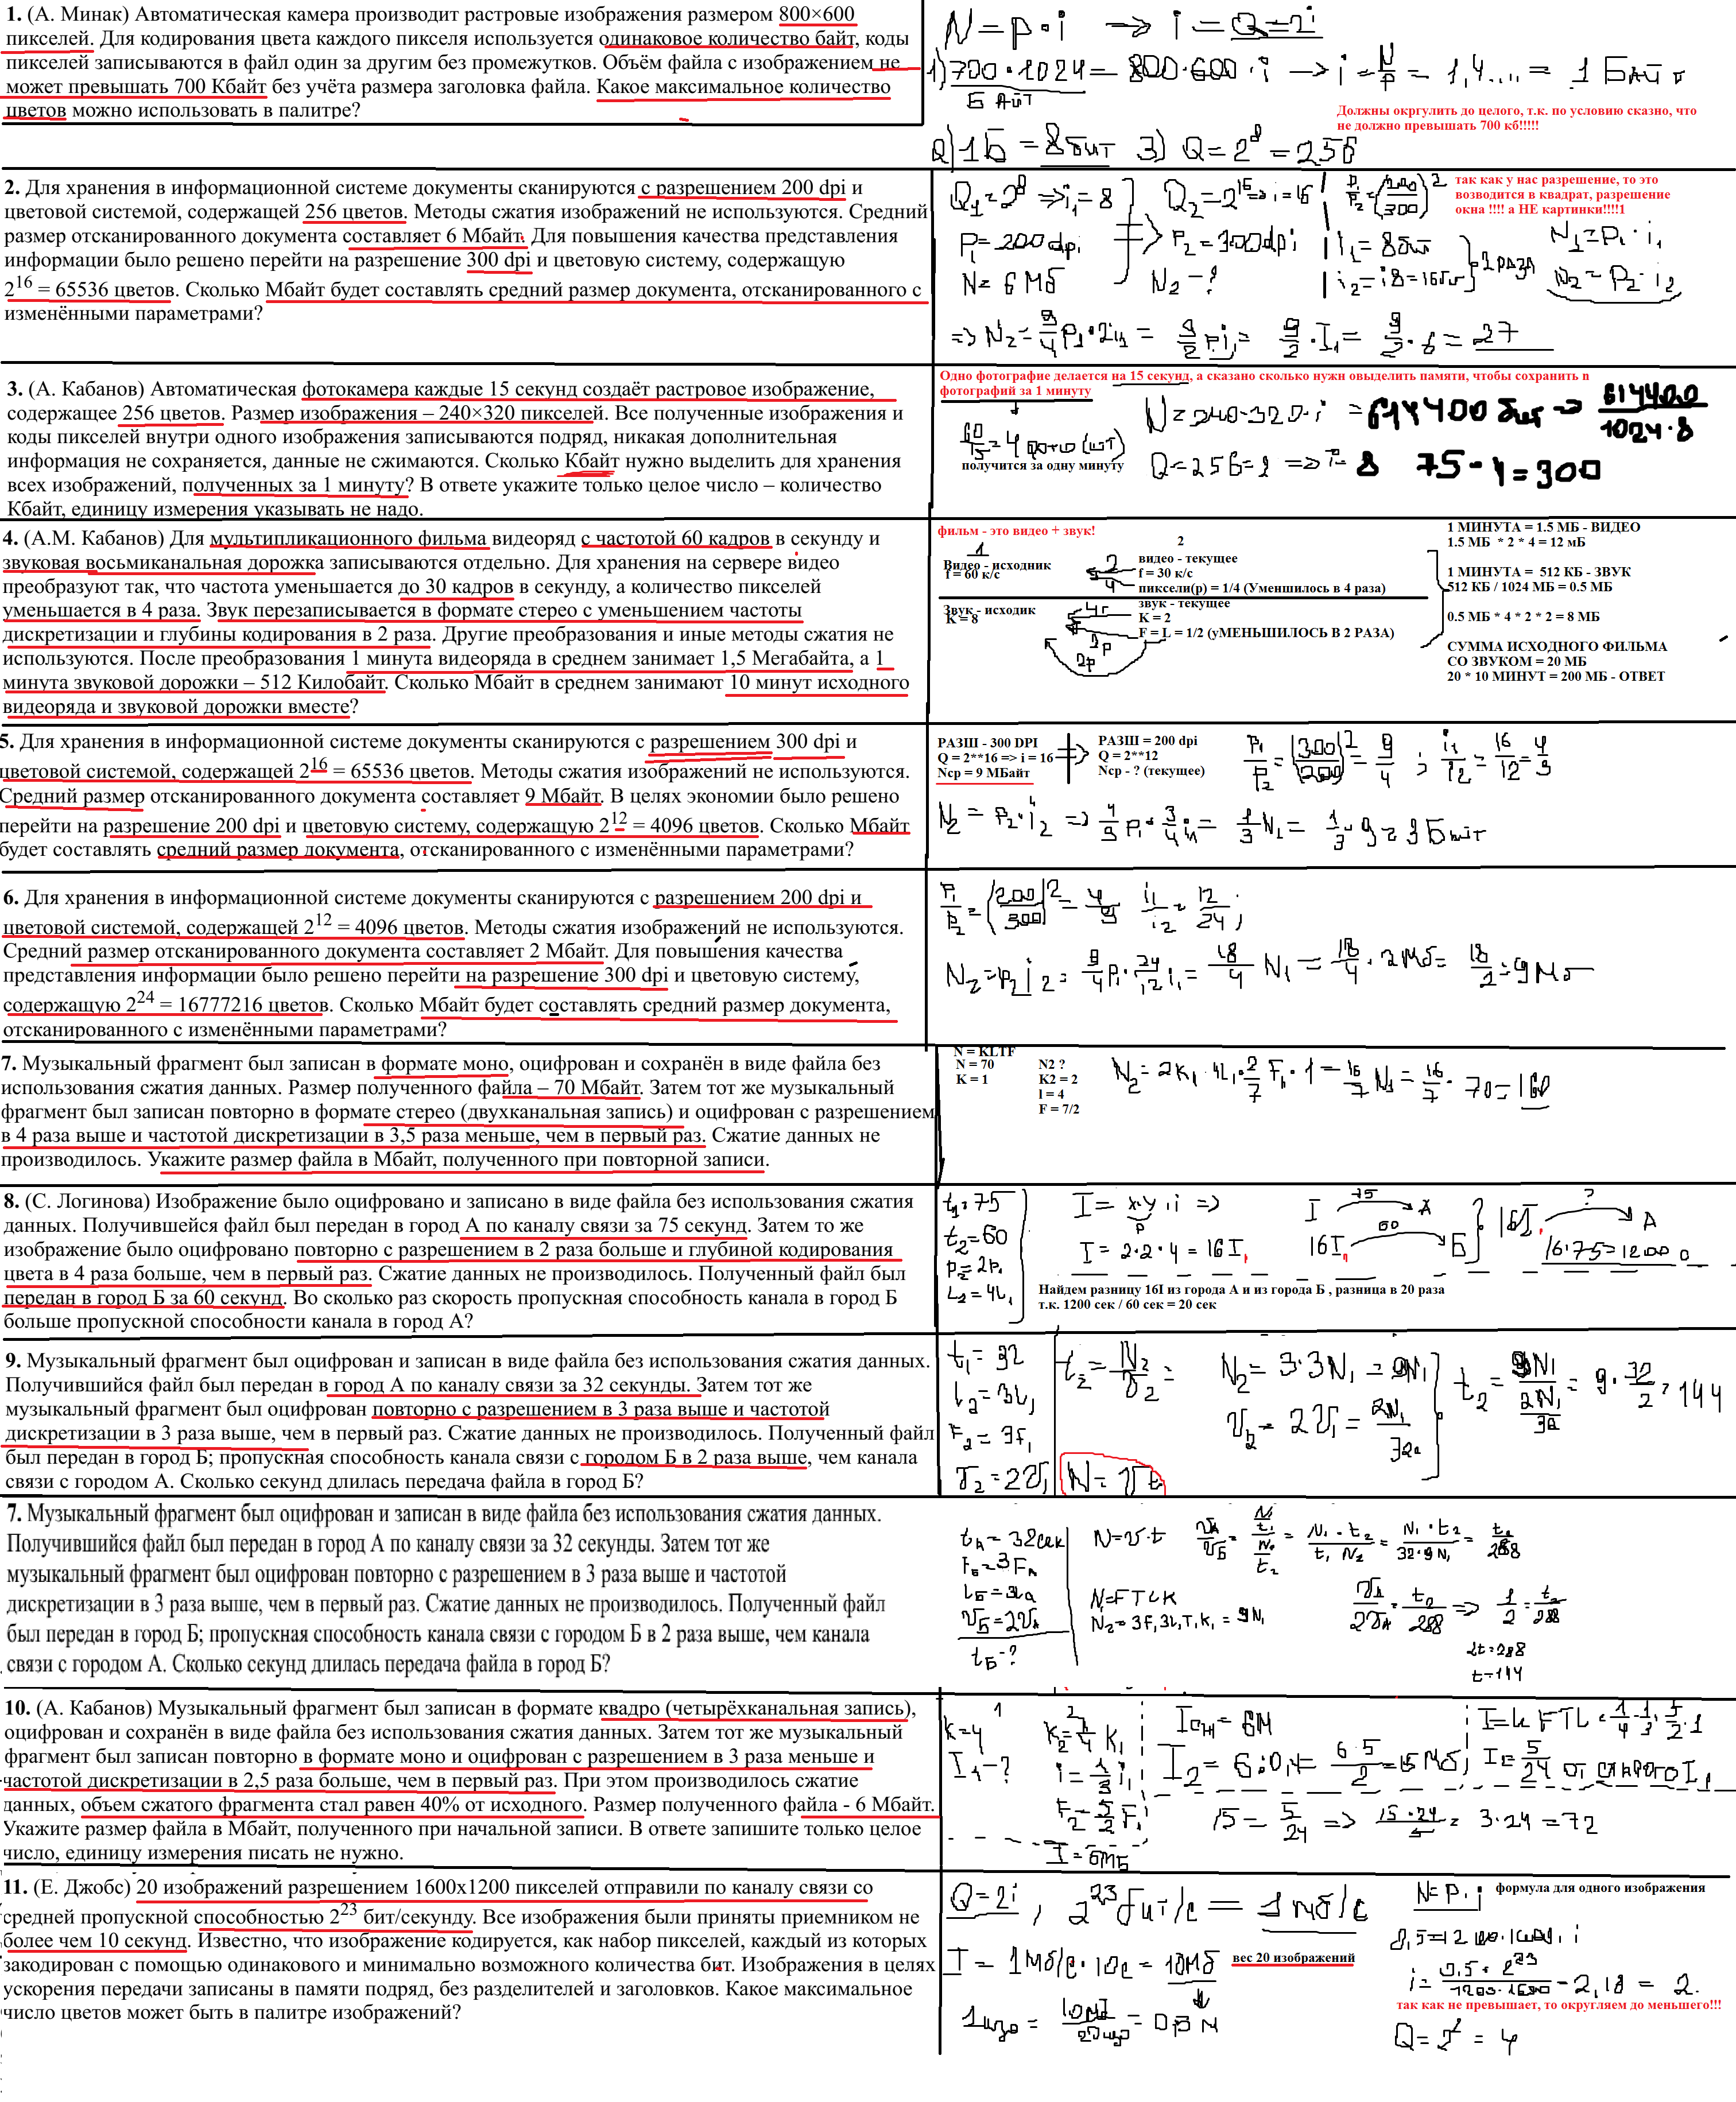 1. (А. Минак) Автоматическая камера производит растровые изображения размером 800×600
пикселей. Для кодирования цвета каждого пикселя используется одинаковое количество байт, коды
пикселей записываются в файл один за другим без промежутков. Объём файла с изображением не
может превышать 700 Кбайт без учёта размера заголовка файла. Какое максимальное количество
цветов можно использовать в палитре?
N = p · i → i = Q = 2i
1) 700·1024 = 800·600·i → i = N/p = 1,4.... = 1 Байт
Байт
Должны окргулить до целого, т.к. по условию сказно, что
не должно превышать 700 кб!!!!!
2) 1Б = 8бит 3) Q = 2^8 = 256
2. Для хранения в информационной системе документы сканируются с разрешением 200 dpi и
цветовой системой, содержащей 256 цветов. Методы сжатия изображений не используются. Средний
размер отсканированного документа составляет 6 Мбайт. Для повышения качества представления
информации было решено перейти на разрешение 300 dpi и цветовую систему, содержащую
2^16 = 65536 цветов. Сколько Мбайт будет составлять средний размер документа, отсканированного с
изменёнными параметрами?
Q1 = 2^8 => i1 = 8
P = 200dpi
N = 6 Мб
Q2 = 2^16 => i = 16
P2 = 300dpi
N2 - ?
P1/P2 = (200/300)^2
так как у нас разрешение, то это
возводится в квадрат, разрешение
окна !!!! а НЕ картинки!!!!1
N1 = P1 · i1
N2 = P2 · i2
=> N2 = 9/4 P1 · 2i1 = 9/2 Pi1 = 9/2 · I1 = 9/2 · 6 = 27
3. (А. Кабанов) Автоматическая фотокамера каждые 15 секунд создаёт растровое изображение,
содержащее 256 цветов. Размер изображения – 240×320 пикселей. Все полученные изображения и
коды пикселей внутри одного изображения записываются подряд, никакая дополнительная
информация не сохраняется, данные не сжимаются. Сколько Кбайт нужно выделить для хранения
всех изображений, полученных за 1 минуту? В ответе укажите только целое число – количество
Кбайт, единицу измерения указывать не надо.
Одно фотографие делается на 15 секунд, а сказано сколько нужн овыделить памяти, чтобы сохранить n
фотографий за 1 минуту
получится за одну минуту
N = 240·320·i = 614400 бит => 614400/1024·8
75 · 4 = 300
4. (А.М. Кабанов) Для мультипликационного фильма видеоряд с частотой 60 кадров в секунду и
звуковая восьмиканальная дорожка записываются отдельно. Для хранения на сервере видео
преобразуют так, что частота уменьшается до 30 кадров в секунду, а количество пикселей
уменьшается в 4 раза. Звук перезаписывается в формате стерео с уменьшением частоты
дискретизации и глубины кодирования в 2 раза. Другие преобразования и иные методы сжатия не
используются. После преобразования 1 минута видеоряда в среднем занимает 1,5 Мегабайта, а 1
минута звуковой дорожки – 512 Килобайт. Сколько Мбайт в среднем занимают 10 минут исходного
видеоряда и звуковой дорожки вместе?
фильм - это видео + звук!
1
Видео - исходник
f = 60 к/с
Звук - исходик
K = 8
2
видео - текущее
f = 30 к/с
пиксели(р) = 1/4 (Уменшилось в 4 раза)
звук - текущее
K = 2
F = L = 1/2 (уМЕНЬШИЛОСЬ В 2 РАЗА)
1 МИНУТА = 1.5 МБ - ВИДЕО
1.5 МБ * 2 * 4 = 12 мБ
1 МИНУТА = 512 КБ - ЗВУК
512 КБ / 1024 МБ = 0.5 МБ
0.5 МБ * 4 * 2 * 2 = 8 МБ
СУММА ИСХОДНОГО ФИЛЬМА
СО ЗВУКОМ = 20 МБ
20 * 10 МИНУТ = 200 МБ - ОТВЕТ
5. Для хранения в информационной системе документы сканируются с разрешением 300 dpi и
цветовой системой, содержащей 2^16 = 65536 цветов. Методы сжатия изображений не используются.
Средний размер отсканированного документа составляет 9 Мбайт. В целях экономии было решено
перейти на разрешение 200 dpi и цветовую систему, содержащую 2^12 = 4096 цветов. Сколько Мбайт
будет составлять средний размер документа, отсканированного с изменёнными параметрами?
РАЗШ - 300 DPI
Q = 2**16 => i = 16
Nср = 9 МБайт
РАЗШ = 200 dpi
Q = 2**12
Nср - ? (текущее)
P1/P2 = (300/200)^2 = 9/4 ; i1/i2 = 16/12 = 4/3
N2 = P2 · i2 => 4/9 P1 · 3/4 i1 = 1/3 N1 = 1/3 · 9 = 3 Байт
6. Для хранения в информационной системе документы сканируются с разрешением 200 dpi и
цветовой системой, содержащей 2^12 = 4096 цветов. Методы сжатия изображений не используются.
Средний размер отсканированного документа составляет 2 Мбайт. Для повышения качества
представления информации было решено перейти на разрешение 300 dpi и цветовую систему,
содержащую 2^24 = 16777216 цветов. Сколько Мбайт будет составлять средний размер документа,
отсканированного с изменёнными параметрами?
P1/P2 = (200/300)^2 = 4/9 i1/i2 = 12/24
N2 = P2 i2 = 9/4 P1 · 24/12 i1 = 18/4 N1 = 18/4 · 2Мб = 18/2 = 9Мб
7. Музыкальный фрагмент был записан в формате моно, оцифрован и сохранён в виде файла без
использования сжатия данных. Размер полученного файла – 70 Мбайт. Затем тот же музыкальный
фрагмент был записан повторно в формате стерео (двухканальная запись) и оцифрован с разрешением
в 4 раза выше и частотой дискретизации в 3,5 раза меньше, чем в первый раз. Сжатие данных не
производилось. Укажите размер файла в Мбайт, полученного при повторной записи.
N = KLTF
N = 70
K = 1
N2 ?
K2 = 2
l = 4
F = 7/2
N2 = 2K1 · 4L1 · 2/7 F1 · 1 = 16/7 N1 = 16/7 · 70 = 160
8. (С. Логинова) Изображение было оцифровано и записано в виде файла без использования сжатия
данных. Получившейся файл был передан в город А по каналу связи за 75 секунд. Затем то же
изображение было оцифровано повторно с разрешением в 2 раза больше и глубиной кодирования
цвета в 4 раза больше, чем в первый раз. Сжатие данных не производилось. Полученный файл был
передан в город Б за 60 секунд. Во сколько раз скорость пропускная способность канала в город Б
больше пропускной способности канала в город А?
t1 = 75
t2 = 60
p2 = 2p1
L2 = 4L1
I = x·y·i =>
I = 2·2·4 = 16I
16·75 = 1200
Найдем разницу 16I из города А и из города Б , разница в 20 раза
т.к. 1200 сек / 60 сек = 20 сек
9. Музыкальный фрагмент был оцифрован и записан в виде файла без использования сжатия данных.
Получившийся файл был передан в город А по каналу связи за 32 секунды. Затем тот же
музыкальный фрагмент был оцифрован повторно с разрешением в 3 раза выше и частотой
дискретизации в 3 раза выше, чем в первый раз. Сжатие данных не производилось. Полученный файл
был передан в город Б; пропускная способность канала связи с городом Б в 2 раза выше, чем канала
связи с городом А. Сколько секунд длилась передача файла в город Б?
t1 = 32
L2 = 3L1
F2 = 3F1
V2 = 2V1
N = Vt
N2 = 3·3N1 = 9N1
7. Музыкальный фрагмент был оцифрован и записан в виде файла без использования сжатия данных.
Получившийся файл был передан в город А по каналу связи за 32 секунды. Затем тот же
музыкальный фрагмент был оцифрован повторно с разрешением в 3 раза выше и частотой
дискретизации в 3 раза выше, чем в первый раз. Сжатие данных не производилось. Полученный файл
был передан в город Б; пропускная способность канала связи с городом Б в 2 раза выше, чем канала
связи с городом А. Сколько секунд длилась передача файла в город Б?
tA = 32сек
tБ - ?
N = v·t
N = FTLK
2t = 288
t = 144
10. (А. Кабанов) Музыкальный фрагмент был записан в формате квадро (четырёхканальная запись),
оцифрован и сохранён в виде файла без использования сжатия данных. Затем тот же музыкальный
фрагмент был записан повторно в формате моно и оцифрован с разрешением в 3 раза меньше и
частотой дискретизации в 2,5 раза больше, чем в первый раз. При этом производилось сжатие
данных, объем сжатого фрагмента стал равен 40% от исходного. Размер полученного файла - 6 Мбайт.
Укажите размер файла в Мбайт, полученного при начальной записи. В ответе запишите только целое
число, единицу измерения писать не нужно.
K = 4
I1 - ?
I = 6МБ
15 = 5/24 => 15·24/5 = 3·24 = 72
11. (Е. Джобс) 20 изображений разрешением 1600x1200 пикселей отправили по каналу связи со
средней пропускной способностью 2^23 бит/секунду. Все изображения были приняты приемником не
более чем 10 секунд. Известно, что изображение кодируется, как набор пикселей, каждый из которых
закодирован с помощью одинакового и минимально возможного количества бит. Изображения в целях
ускорения передачи записаны в памяти подряд, без разделителей и заголовков. Какое максимальное
число цветов может быть в палитре изображений?
Q = 2i , 2^23 бит/с = 1 мб/с
N = P · i формула для одного изображения
I = 1Мб/с · 10с = 10Мб вес 20 изображений
так как не превышает, то округляем до меньшего!!!
Q = 2^2 = 4